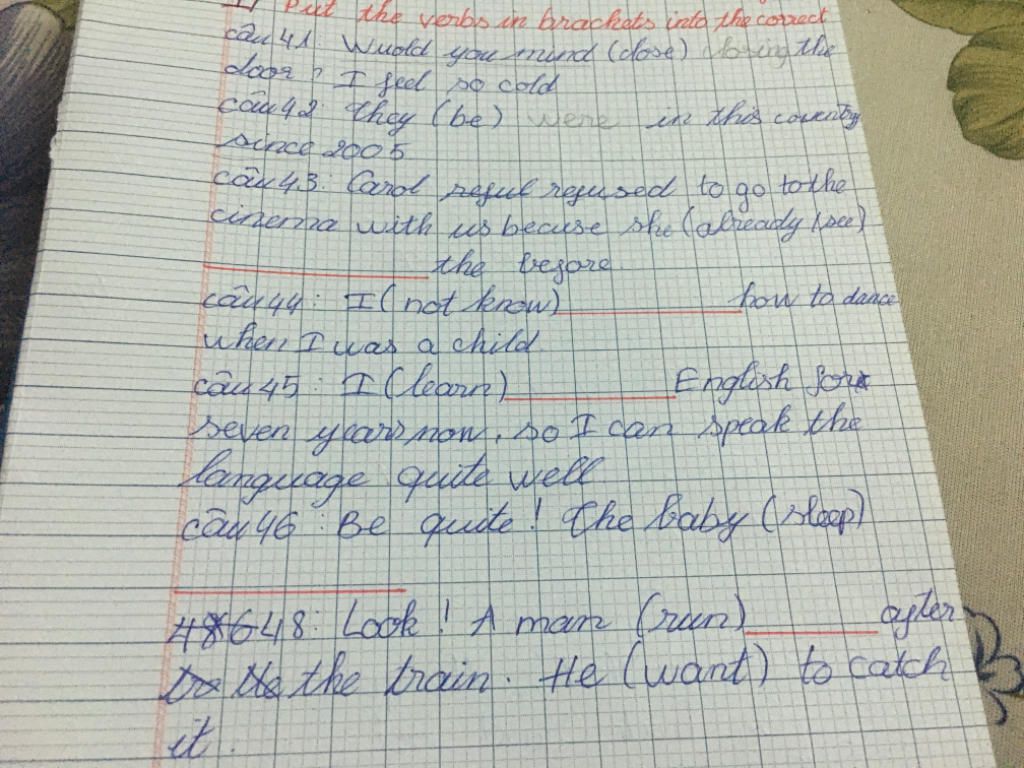 Put the verbs in brackets into the correct
câu 41: Wuold you mind (close) closing the
door? I feel so cold
câu 42: they (be) were in this country
since 2005
câu 43: Carol reful refused to go to the
cinema with us becuse she (already / see)
the before.
câu 44: I (not know) how to dance
when I was a child
câu 45: I (learn) English for
seven years now, so I can speak the
language quite well
câu 46: Be quite! the baby (sleep)
48: Look! A man (run) after
the train. He (want) to catch
it.